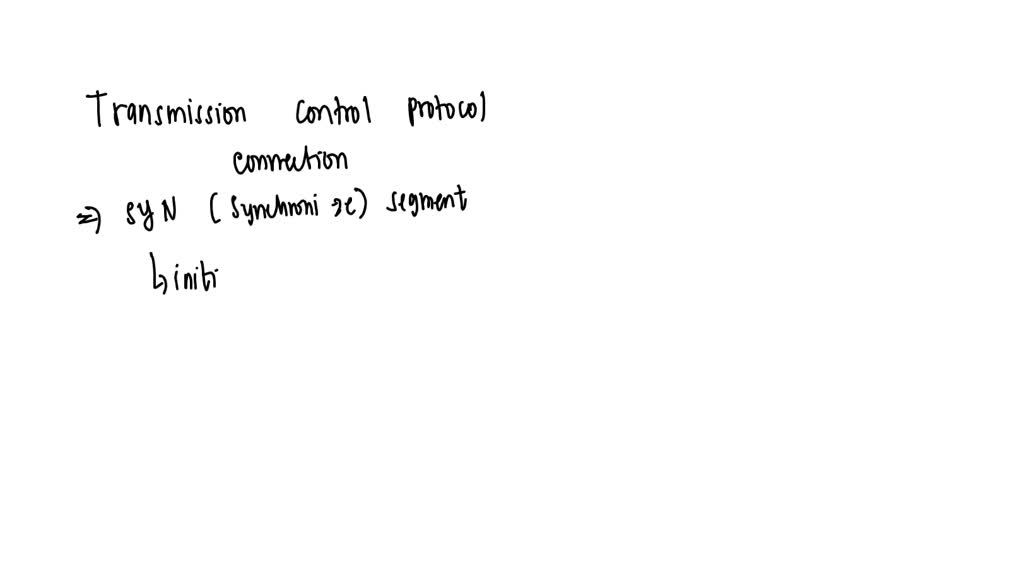 Transmission control protocol
connection
=> SYN (synchronize) segment
↳ initi